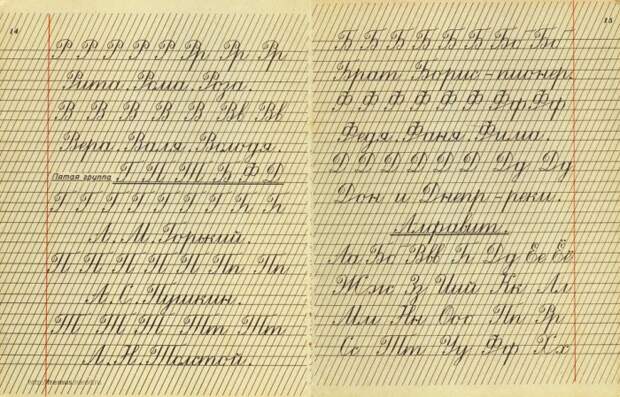 14
Р Р Р Р Р Р Рр Рр Рр
Рита. Рома. Роза.
В В В В В В Вв Вв
Вера. Валя. Володя.
Пятая группа Г П Т Б Ф Д
Г Г Г Г Г Г Г Гг Гг
А. М. Горький.
П П П П П П Пп Пп
А. С. Пушкин.
Т Т Т Тт Тт
Л. Н. Толстой.
15
Б Б Б Б Б Б Б Бб Бб
Брат Борис - пионер.
Ф Ф Ф Ф Ф Ф Ф Фф Фф
Федя. Фаня. Фима.
Д Д Д Д Д Д Дд Дд
Дон и Днепр - реки.
Алфавит.
Аа Бб Вв Гг Дд Ее Ёё
Жж Зз Иий Кк Лл
Мм Нн Оо Пп Рр
Сс Тт Уу Фф Хх